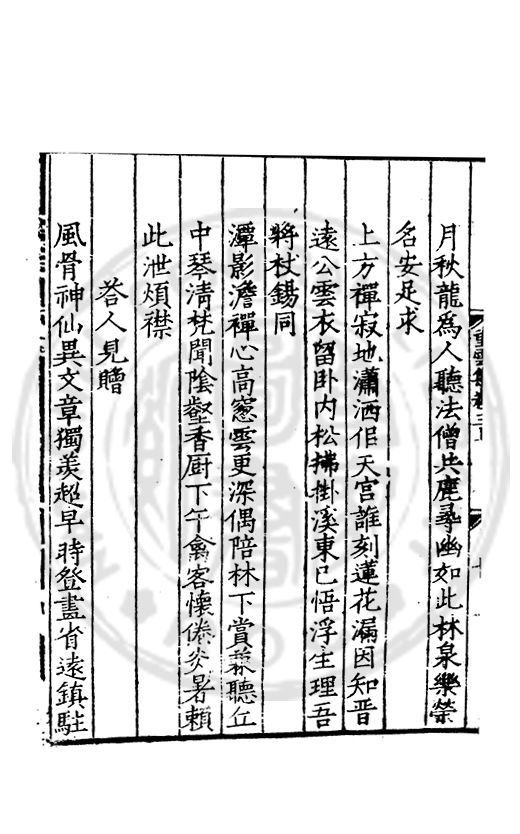 月秋龍為人聽法僧共鹿尋幽如此林泉樂榮
名安足求
上方禪寂地瀟洒佀天宮誰刻蓮花漏因知晋
遠公雲衣留卧内松拂掛溪東已悟浮生理吾
將杖錫同
潭影澹禪心高窓雲更深偶陪林下賞兼聽丘
中琴清梵聞陰壑香厨下午禽客懷倦炎暑賴
此泄煩襟
荅人見贈
風骨神仙異文章獨羨超早時登畫省遠鎮駐